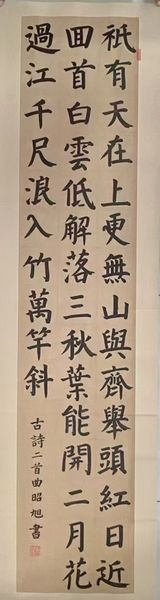 祇有天在上更無山與齊舉頭紅日近
回首白雲低解落三秋葉能開二月花
過江千尺浪入竹萬竿斜
古詩二首曲昭旭書